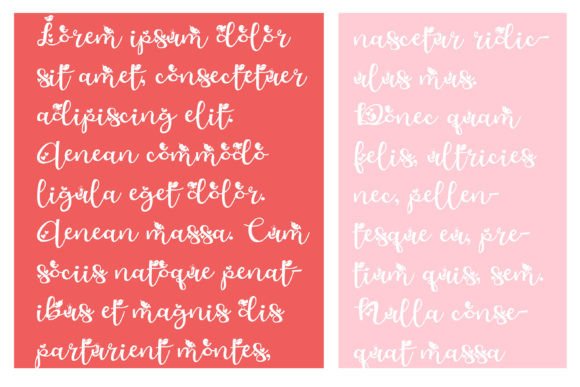 Lorem ipsum dolor
sit amet, consectetuer
adipiscing elit.
Aenean commodo
ligula eget dolor.
Aenean massa. Cum
sociis natoque penat-
ibus et magnis dis
parturient montes,
nascetur ridic-
ulus mus.
Donec quam
felis, ultricies
nec, pellen-
tesque eu, pre-
tium quis, sem.
Nulla conse-
quat massa